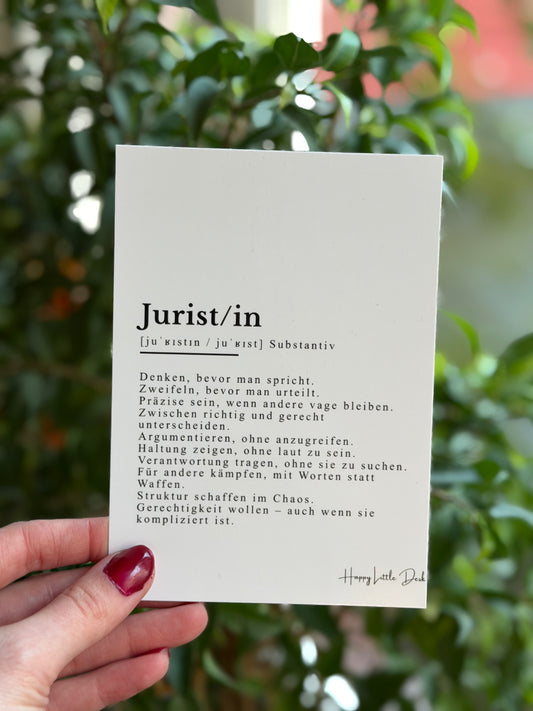 Jurist/in
[juˈʁɪstɪn / juˈʁɪst] Substantiv
Denken, bevor man spricht.
Zweifeln, bevor man urteilt.
Präzise sein, wenn andere vage bleiben.
Zwischen richtig und gerecht
unterscheiden.
Argumentieren, ohne anzugreifen.
Haltung zeigen, ohne laut zu sein.
Verantwortung tragen, ohne sie zu suchen.
Für andere kämpfen, mit Worten statt
Waffen.
Struktur schaffen im Chaos.
Gerechtigkeit wollen – auch wenn sie
kompliziert ist.
Happy Little Desk